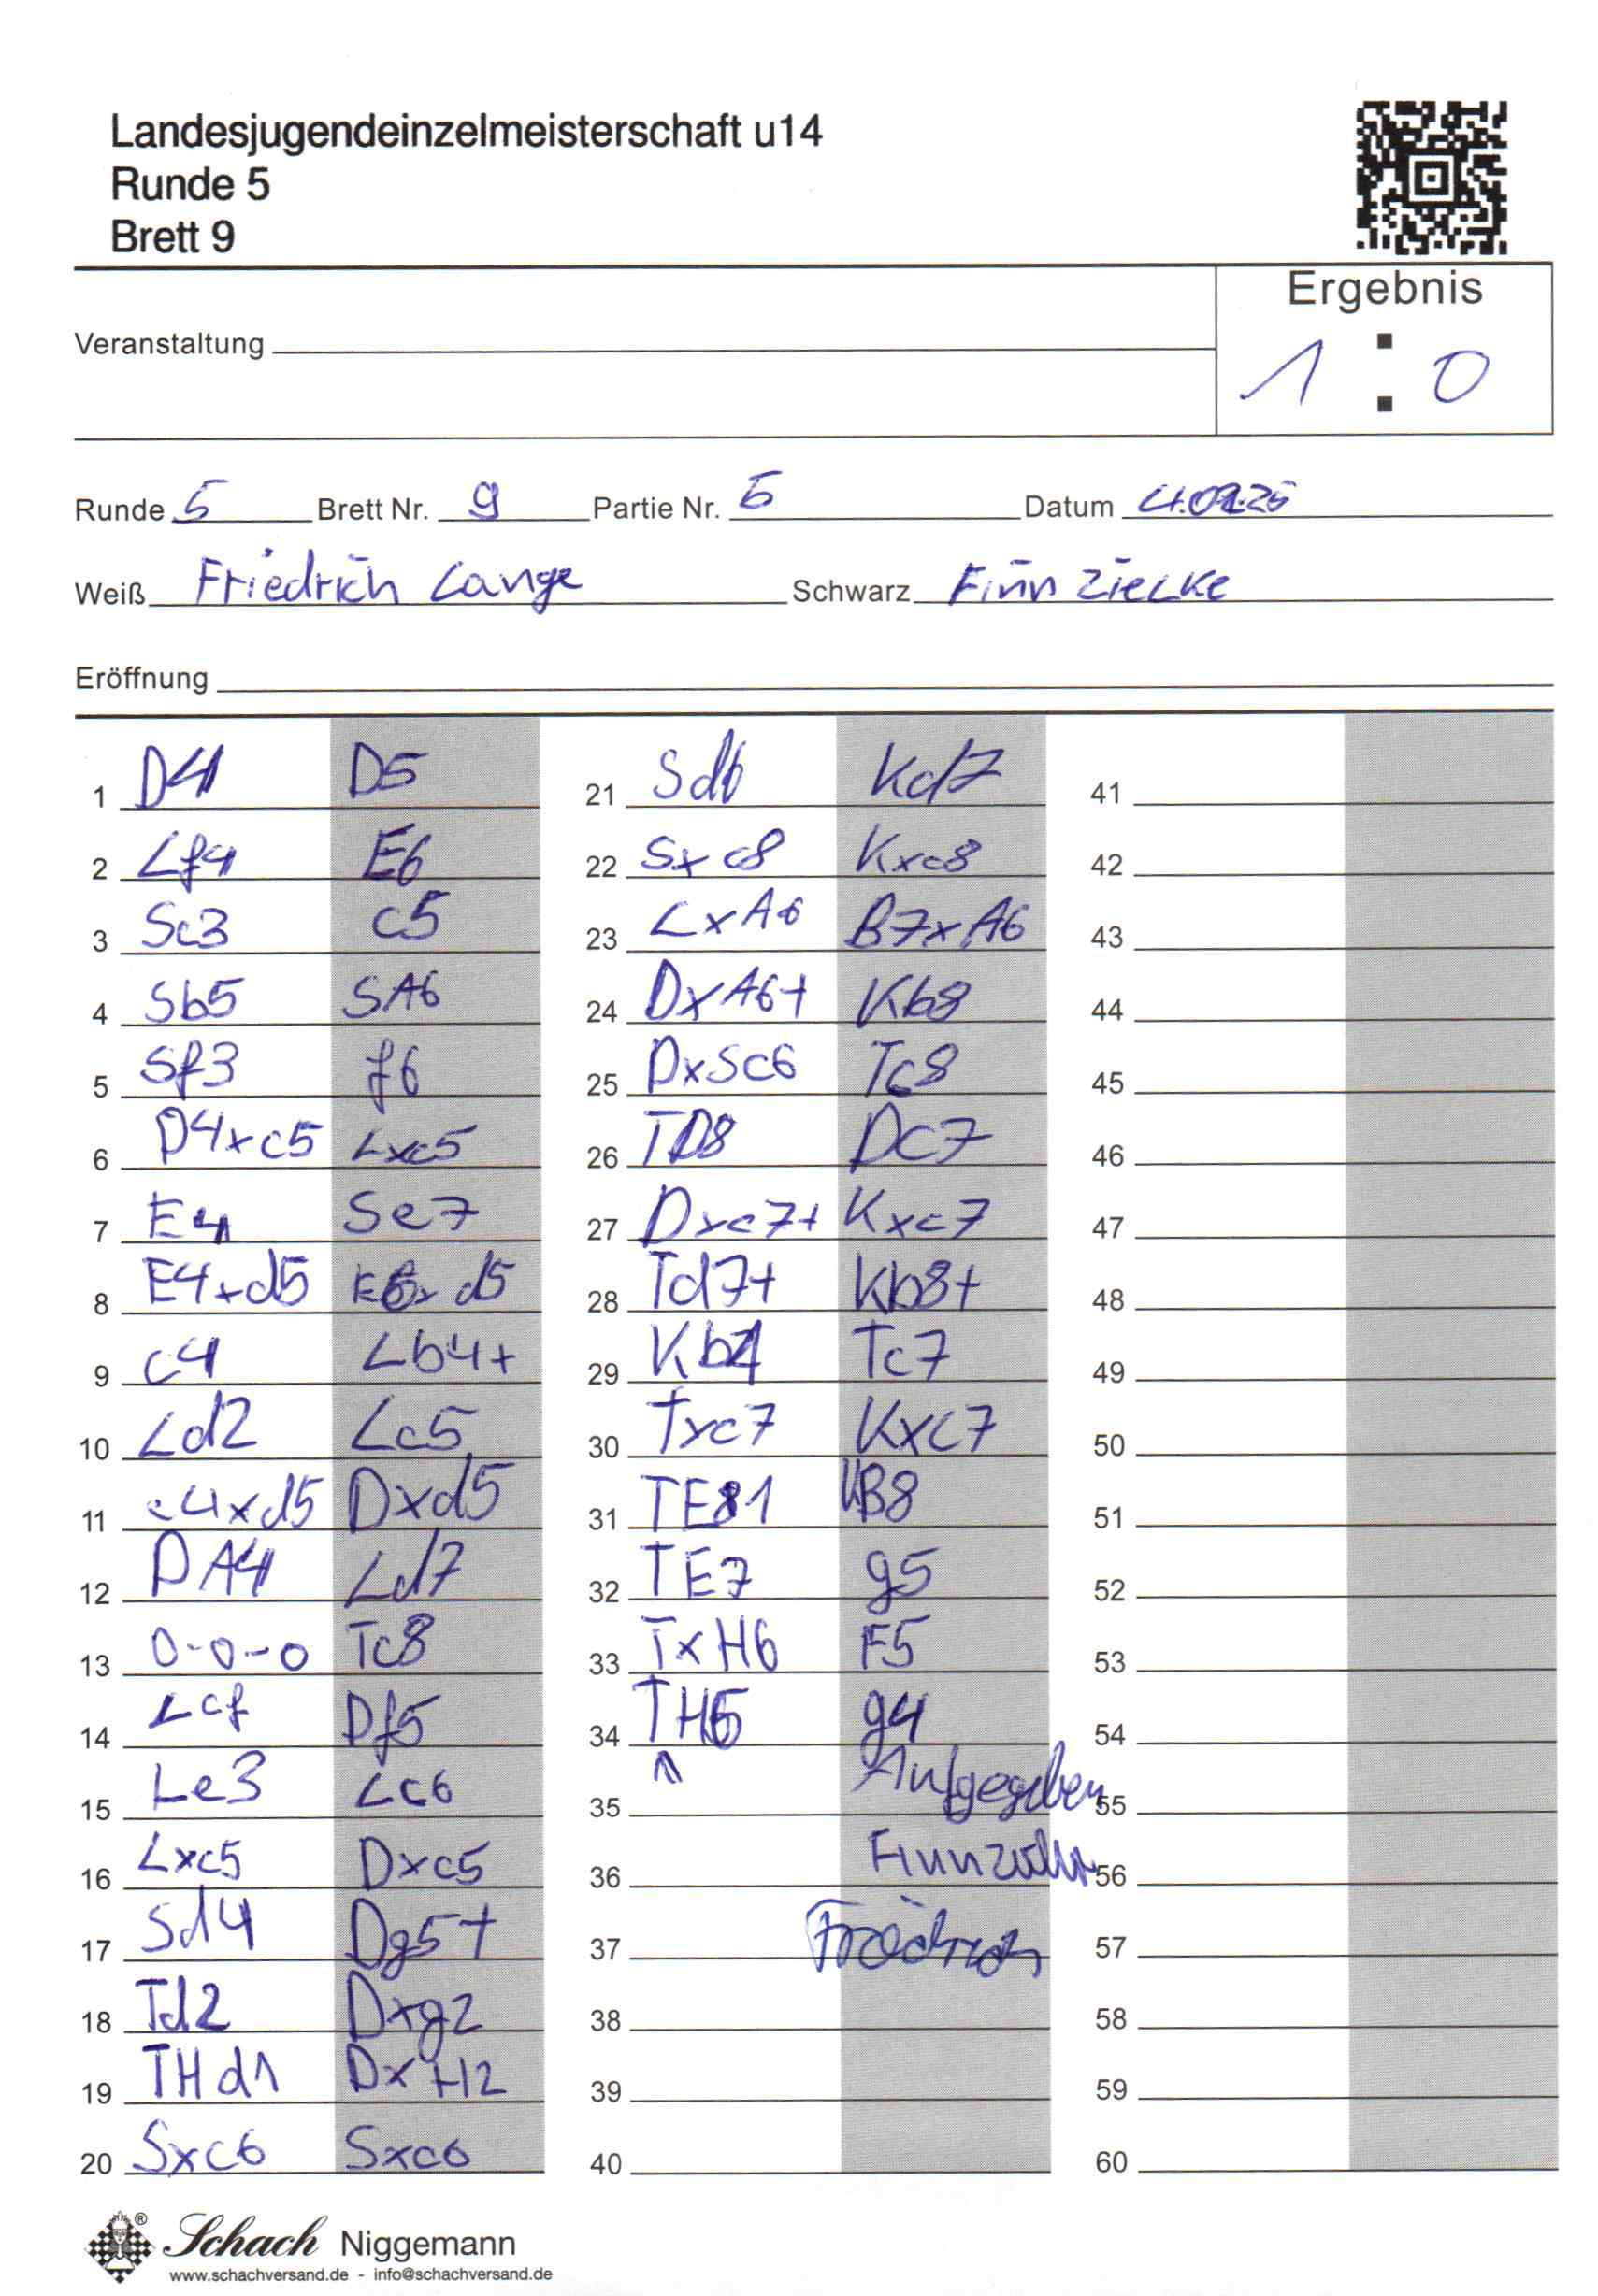 Landesjugendeinzelmeisterschaft u14
Runde 5
Brett 9
Ergebnis
1 : 0
Veranstaltung
Runde 5 Brett Nr. 9 Partie Nr. 5 Datum 4.02.25
Weiß Friedrich Lange Schwarz Finn Zielke
Eröffnung
1 D4 D5
2 Lf4 E6
3 Sc3 c5
4 Sb5 SA6
5 Sf3 f6
6 D4xc5 Lxc5
7 E4 Se7
8 E4xd5 E6xd5
9 c4 Lb4+
10 Ld2 Lc5
11 c4xd5 Dxd5
12 DA4 Ld7
13 0-0-0 Tc8
14 Lc4 Df5
15 Le3 Lc6
16 Lxc5 Dxc5
17 Sd4 Dg5+
18 Td2 Dxg2
19 THd1 DxH2
20 Sxc6 Sxc6
21 Sd6 Kd7
22 Sxc8 Kxc8
23 LxA6 B7xA6
24 DxA6+ Kb8
25 DxSc6 Tc8
26 TD8 Dc7
27 Dxc7+ Kxc7
28 Td7+ Kb8+
29 Kb1 Tc7
30 Txc7 Kxc7
31 TE1 KB8
32 TE7 g5
33 TxH6 F5
34 TH5 g4
35 Aufgegeben
36 Finn Zielke
37 Friedrich
38
39
40
41
42
43
44
45
46
47
48
49
50
51
52
53
54
55
56
57
58
59
60
Schach Niggemann
www.schachversand.de - info@schachversand.de